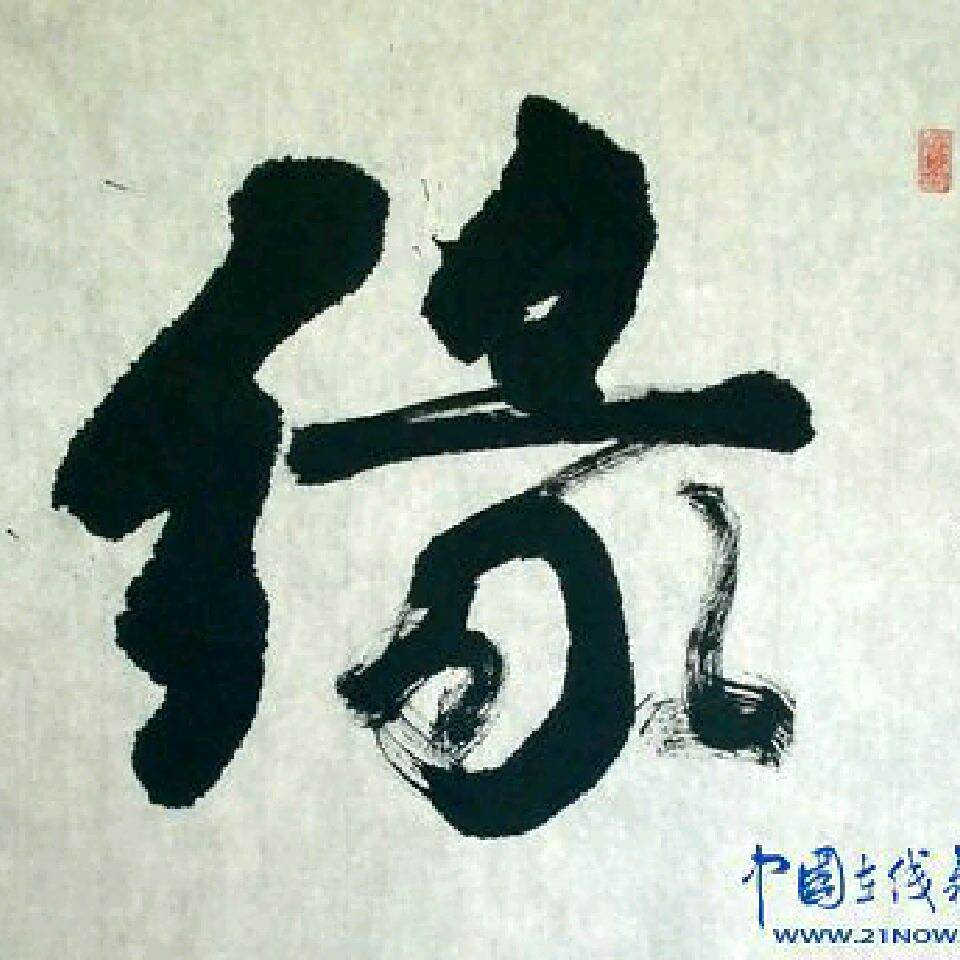 缘
中国在线
WWW.21NOW.